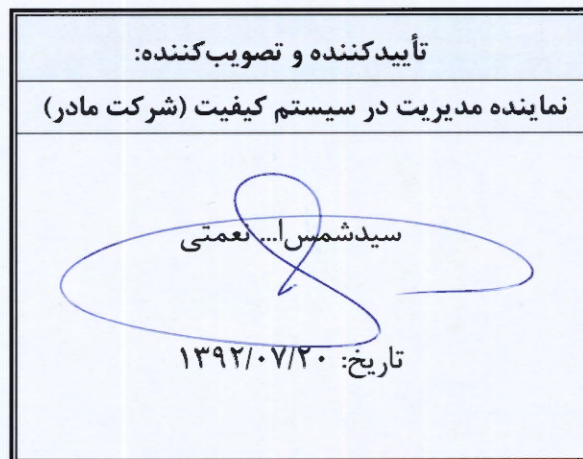 تأییدکننده و تصویب‌کننده:
نماینده مدیریت در سیستم کیفیت (شرکت مادر)
سیدشمس‌ا... نعمتی
تاریخ: ۱۳۹۲/۰۷/۲۰